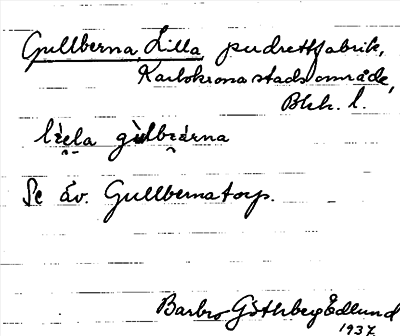 Gullberna, Lilla, pudrettfabrik,
Karlskrona stadsområde,
Blek. l.
Se äv. Gullbernatorp.
Barbro Götherberg Edlund
1937